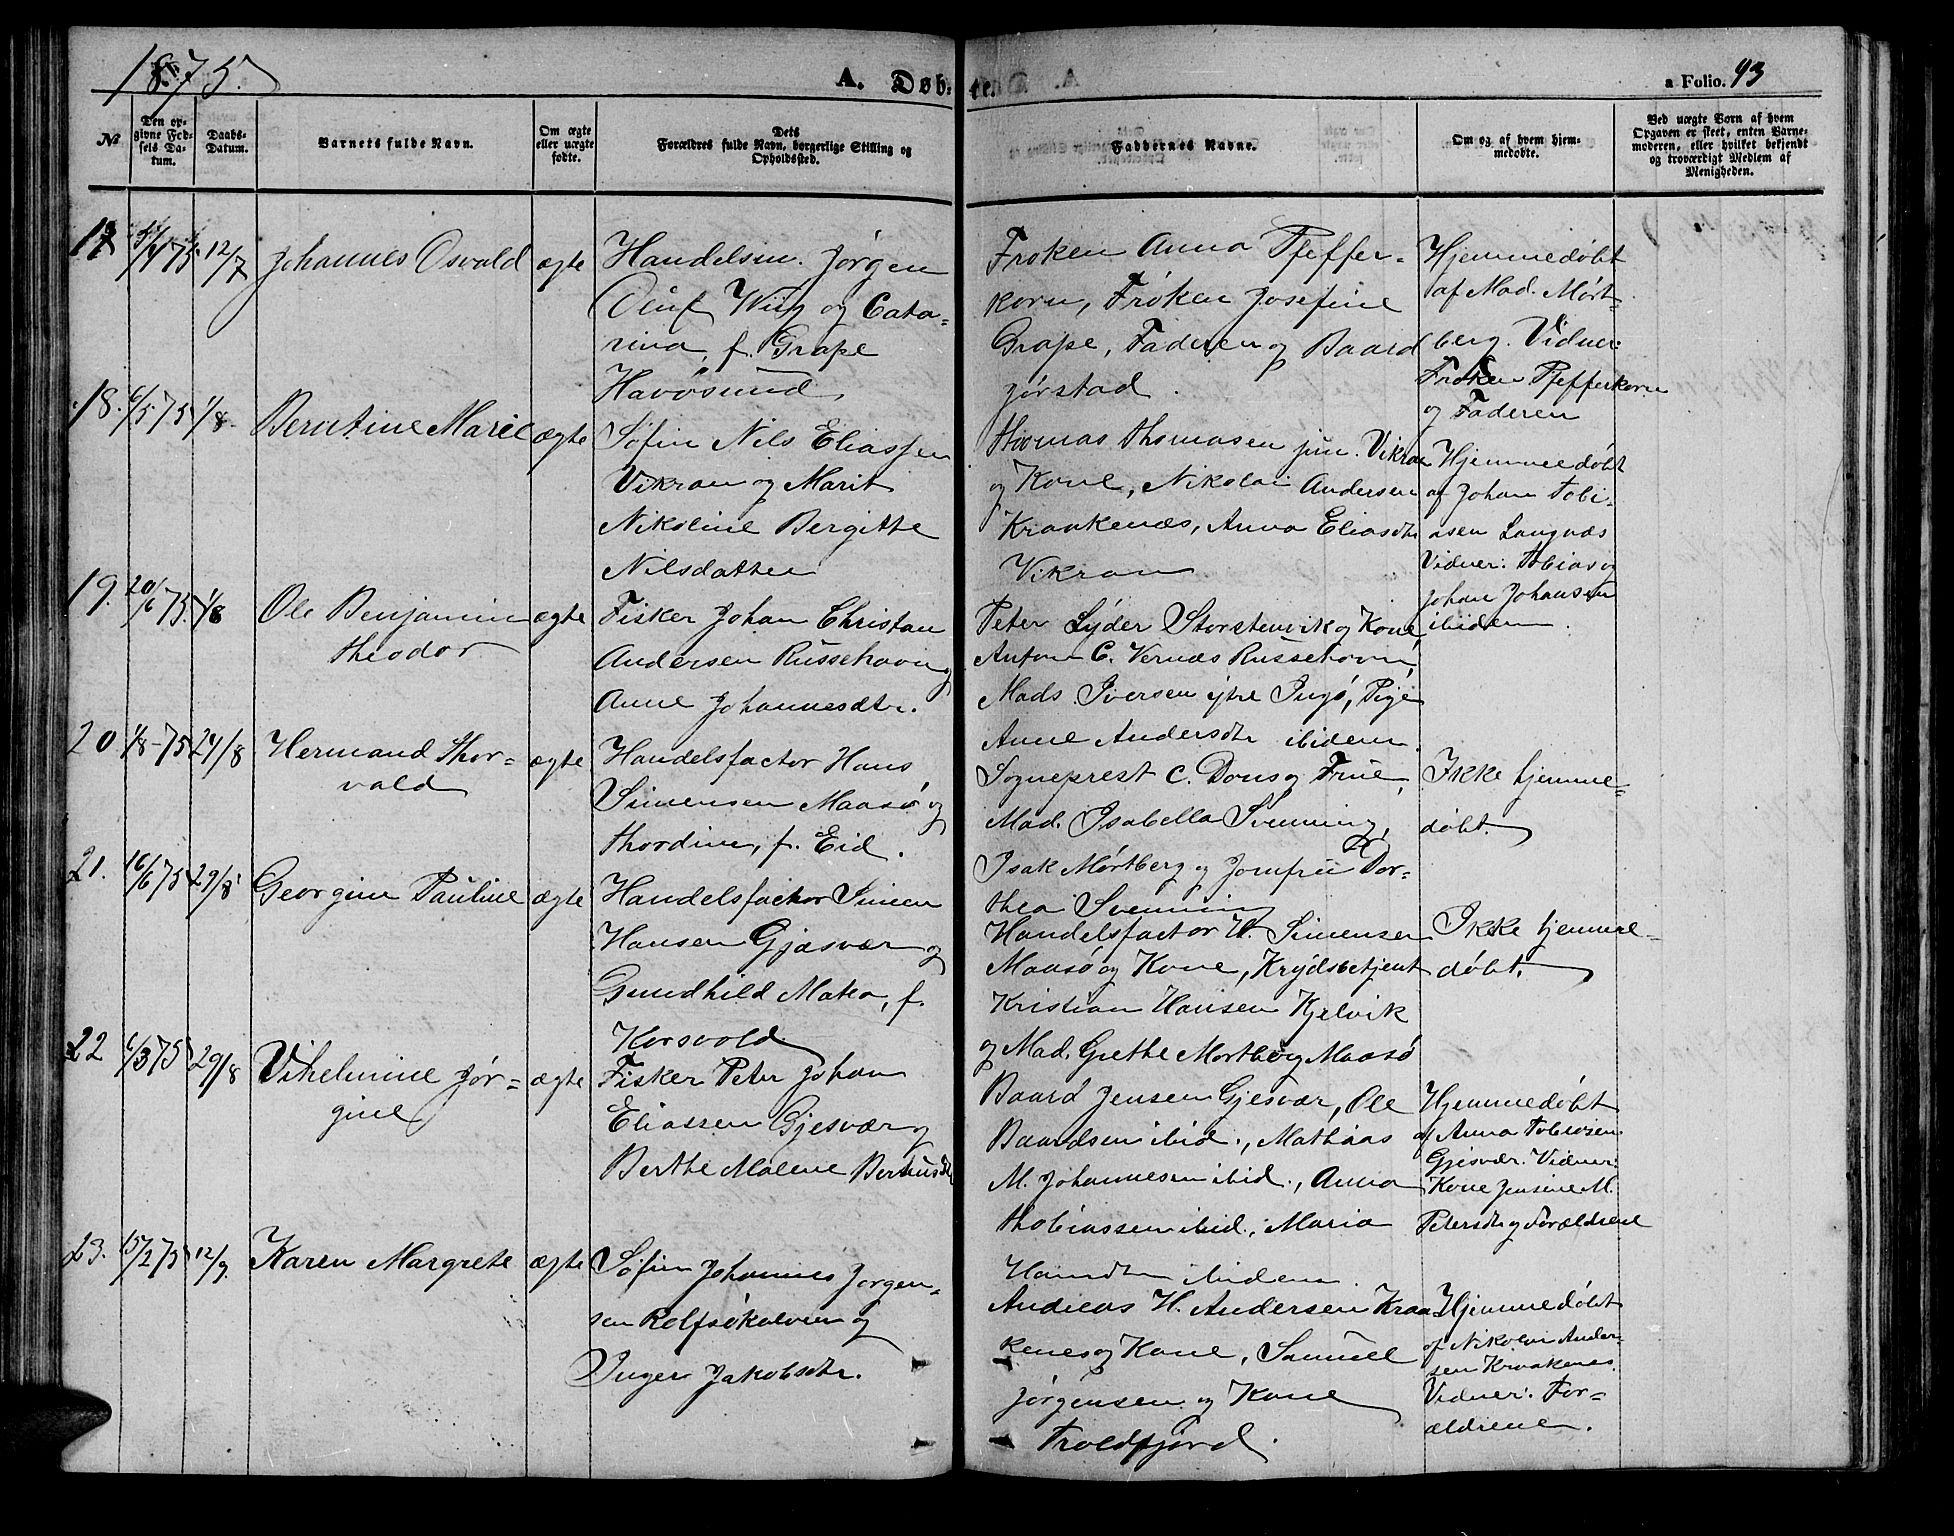 1875.
A. Døbte.
a Folio. 93
№
Den op-
givne Fød-
sels Da-
tum.
Daabs-
Datum.
Barnets fulde Navn.
Om ægte
eller uægte
fødte.
Dets
Forældres fulde Navn, borgerlige Stilling og
Opholdssted.
Faddernes Navne.
Om og af hvem hjem-
medøbte.
Ved uægte Børn af hvem
Opgaven er skeet, enten Barne-
moderen, eller hvilket bekjendt
og troværdigt Medlem af
Menigheden.
17
12/7
Johannes Osvald
ægte
Handelsm. Jørgen
Oluf Wiig og Catha-
rina, f. Grape
Havøsund.
Frøken Anna Pfeffer-
korn, Frøken Josefine
Grape, Faderen og Baard
Jørstad.
Hjemmedøbt
af Mad. Mørt-
berg. Vidner:
Frøken Pfefferkorn
og Faderen
18. 6/5 75 1/8.
Berntine Marie
ægte
Søfin Nils Eliassen
Vikran og Marit
Nikoline Bergitte
Nilsdatter
Thomas Thomasen jun. Vikran
og Kone, Nikolai Andersen
Kraakenæs, Anna Eliasdtr
Vikran
Hjemmedøbt
af Johan Tobi-
asen Langnæs
Vidner: Tobias og
Johan Johansen
ibidem.
19. 20/6 75. 1/8
Ole Benjamin
Theodor
ægte
Fisker Johan Christian
Andersen Russehavn og
Anne Johannesdtr.
Peter Lyder Storstenvik og Kone,
Anton C. Vernæs Russehavn,
Mads Iversen ytre Ingø, Pige
Anne Andersdtr ibidem.
20 1/8-75 24/8
Hermand Thor-
vald
ægte
Handelsfactor Hans
Simensen Maasø og
Thordine, f. Eid.
Sogneprest C. Dons og Frue,
Mad. Isabella Svenning,
Isak Mørtberg og Jomfru Dor-
thea Svenning
Ikke hjemme-
døbt.
21. 16/6 75 29/8
Georgine Pauline
ægte
Handelsfactor Simen
Hansen Gjæsvær og
Gundhild Marka, f.
Korsvold
Handelsfactor H. Simensen
Maasø og Kone, Krydsbetjent
Kristian Hansen Kjelvik
og Mad. Grethe Mørtberg Maasø
Ikke hjemme-
døbt.
22 6/3 75 29/8
Vihelmine Jør-
gine
ægte
Fisker Peter Johan
Eliassen Gjesvær og
Berthe Malene
Baard Jensen Gjesvær, Ole
Baardsen ibid., Mathias
M. Johannesen ibid., Anna
Thobiassen ibid., Maria
Hansdtr ibidem.
Hjemmedøbt
af Anna Tobiasen
Gjesvær. Vidner:
Kone Jensine M.
Petersdtr og Forældrene
23. 15/2 75 12/9.
Karen Margrete
ægte
Søfin Johannes Jørgen-
sen Rolfsøkalven og
Inger Jakobsdtr.
Andreas H. Andersen Kraa-
kenes og Kone, Samuel
Jørgensen og Kone
Troldfjord.
Hjemmedøbt
af Nikolai Ander-
sen Kraakenes.
Vidner: For-
ældrene.